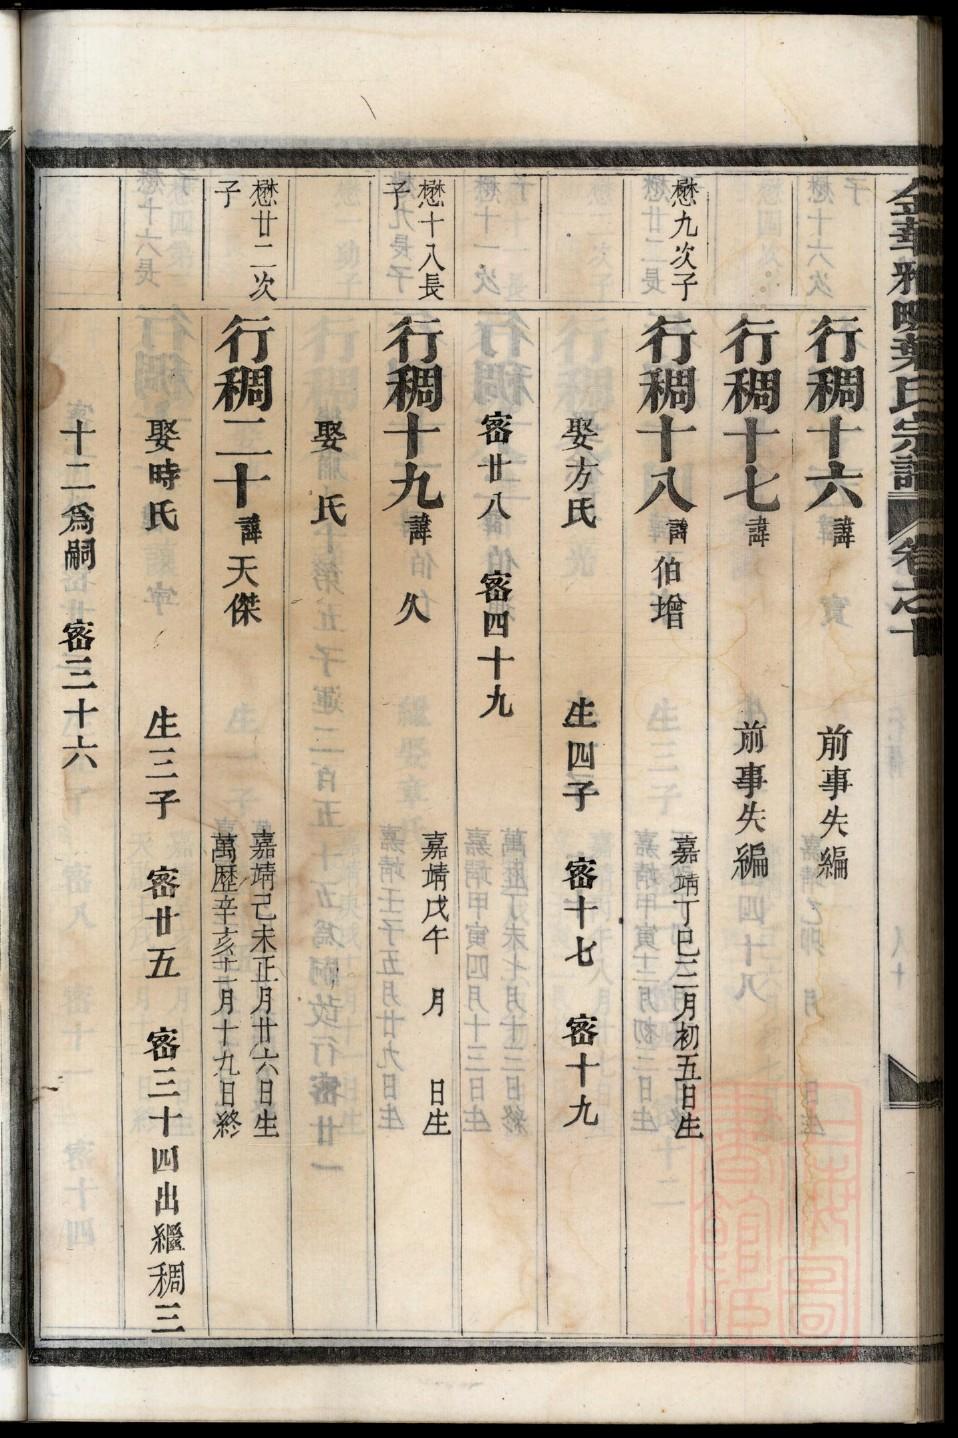 金華雅畈葉氏宗譜 卷之十
行稠十六 諱 前事失編
行稠十七 諱 前事失編
懋九次子
行稠十八 諱伯增 嘉靖丁巳三月初五日生
娶方氏 生四子 密十七 密十九
密廿八 密四十九
懋十八長子
行稠十九 諱 久 嘉靖戊午 月 日生
娶 氏
懋廿二次子
行稠二十 諱天傑 嘉靖己未正月廿六日生
萬歷辛亥十一月十九日終
娶時氏 生三子 密廿五 密三十四出繼稠三
十二為嗣 密三十六